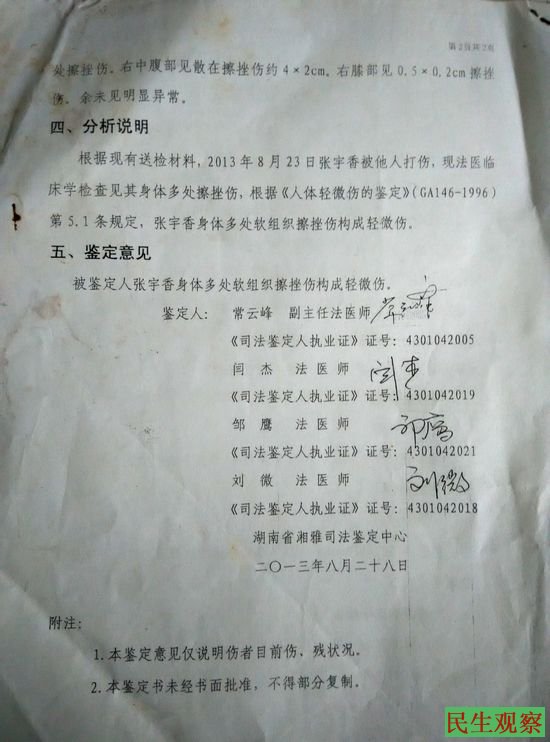 第2页共2页
处擦挫伤。右中腹部见散在擦挫伤约4×2cm。右膝部见0.5×0.2cm擦挫
伤。余未见明显异常。
四、分析说明
根据现有送检材料，2013年8月23日张宇香被他人打伤，现法医临
床学检查见其身体多处擦挫伤，根据《人体轻微伤的鉴定》(GA146-1996)
第5.1条规定，张宇香身体多处软组织擦挫伤构成轻微伤。
五、鉴定意见
被鉴定人张宇香身体多处软组织擦挫伤构成轻微伤。
鉴定人： 常云峰 副主任法医师 常云峰
《司法鉴定人执业证》证号：4301042005
闫杰 法医师 闫杰
《司法鉴定人执业证》证号：4301042019
邹鹰 法医师 邹鹰
《司法鉴定人执业证》证号：4301042021
刘微 法医师 刘微
《司法鉴定人执业证》证号：4301042018
湖南省湘雅司法鉴定中心
二〇一三年八月二十八日
附注：
1.本鉴定意见仅说明伤者目前伤、残状况。
2.本鉴定书未经书面批准，不得部分复制。
民生观察